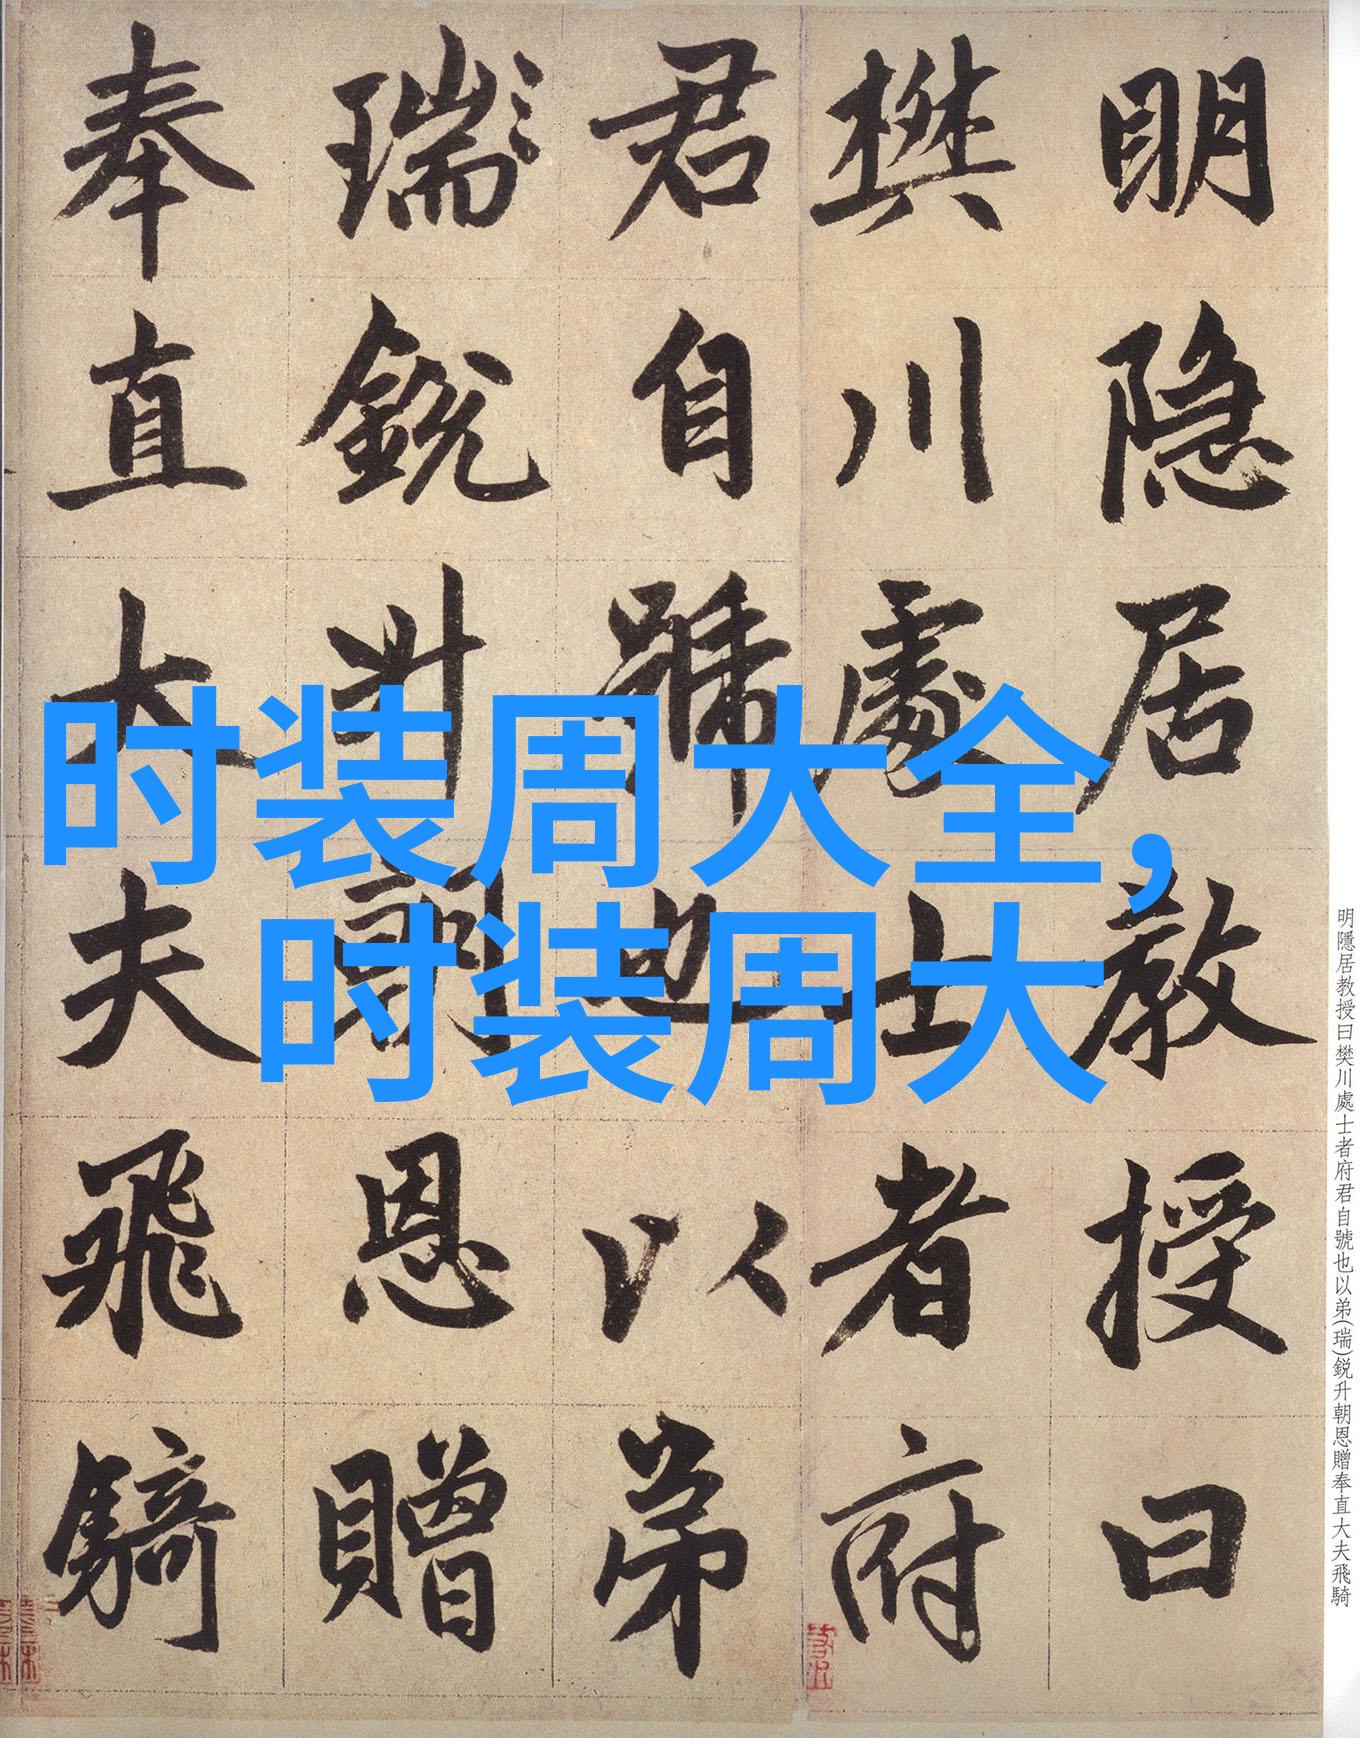 明隐居教授曰
樊川處士者府
君自號也以弟
瑞銳升朝恩贈
奉直大夫飛騎
时装周大全，
时装周大
明隱居教授曰樊川處士者府君自號也以弟(瑞)銳升朝恩贈奉直大夫飛騎